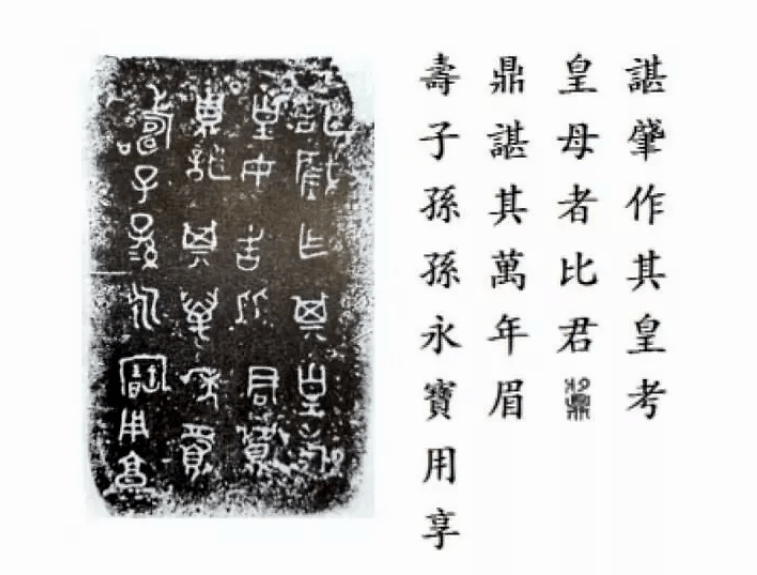 諶肇作其皇考
皇母者比君𩱧
鼎諶其萬年眉
壽子孫孫永寶用享